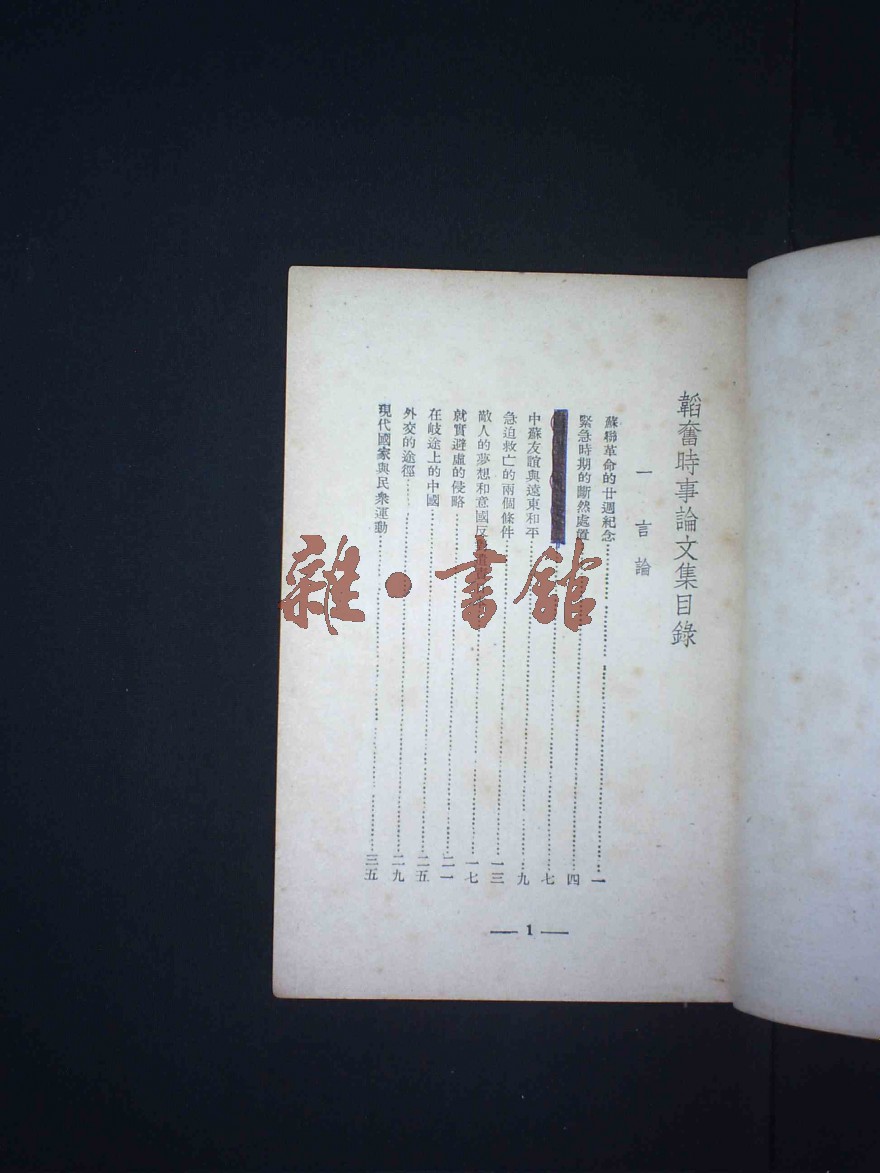 韜奮時事論文集目錄
一 言論
蘇聯革命的廿週紀念……一
緊急時期的斷然處置……四
……七
中蘇友誼與遠東和平……九
急迫救亡的兩個條件……一三
敵人的夢想和意國反……一七
就實避虛的侵略……二一
在岐途上的中國……二五
外交的途徑……二九
現代國家與民衆運動……三五
— 1 —
雜·書館